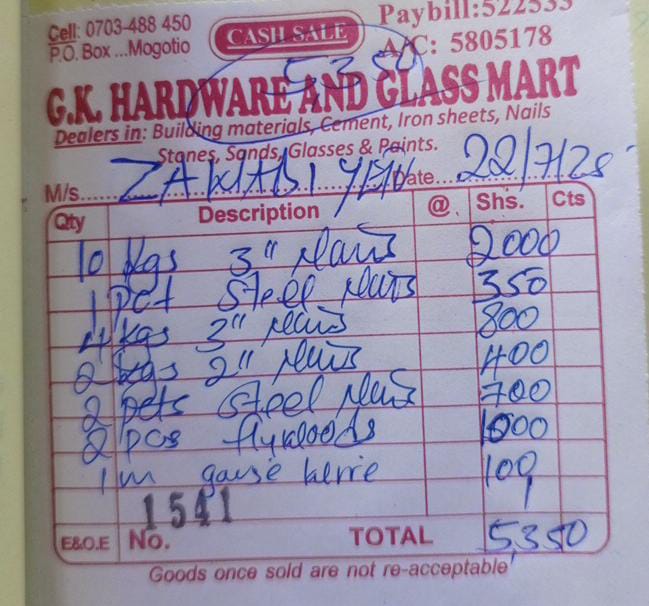 Cell: 0703-488 450
P.O. Box ...Mogotio
CASH SALE
Paybill:522533
A/C: 5805178
5,350
G.K. HARDWARE AND GLASS MART
Dealers in: Building materials, Cement, Iron sheets, Nails
Stones, Sands, Glasses & Paints.
M/s..... Date... 22/7/25
Qty Description @ Shs. Cts
10 kgs 3" Nails 2000
1 pct Steel Nails 350
4 kgs 3" Nails 800
2 kgs 2" Nails 400
2 pcts Steel Nails 700
2 pcs flywoods 1000
1 m gause 100
1541
E&O.E No. TOTAL 5,350
Goods once sold are not re-acceptable